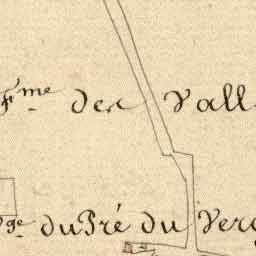 fme des Vall
ge du Pré du Verg